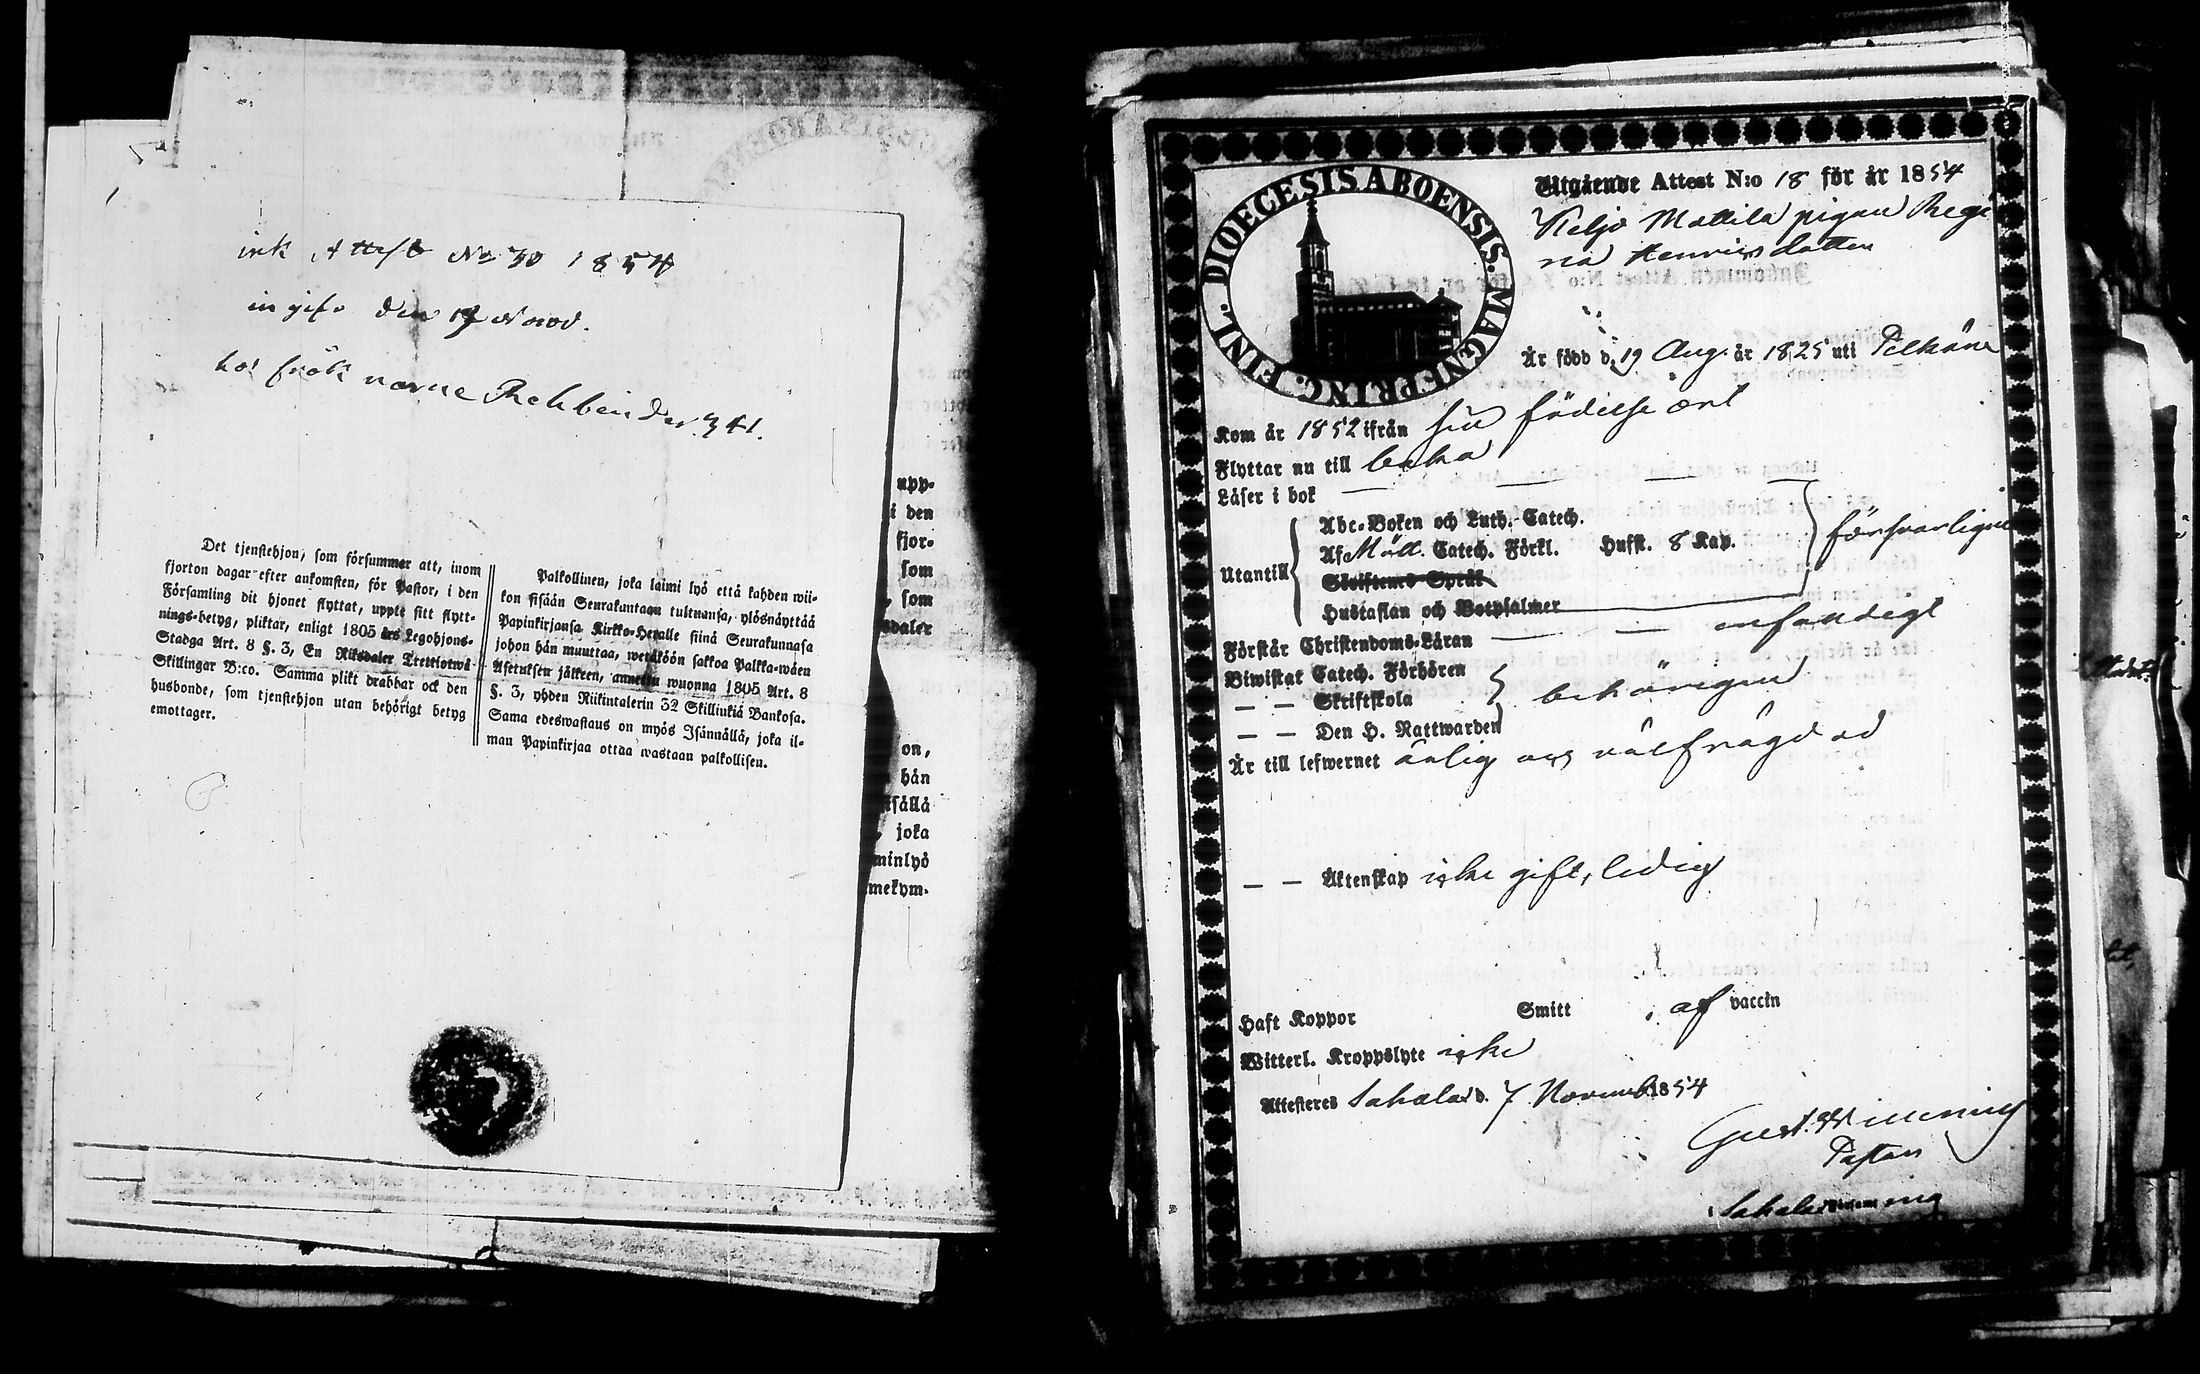 ink Attest No 30 1854
in gifv den 17 Novd.
hos frök narne Rehbinder 341.
Det tjenstehjon, som försummar att, inom
fjorton dagar efter ankomsten, för Pastor, i den
Församling dit hjonet flyttat, uppte sitt flytt-
nings-betyg, pliktar, enligt 1805 års Legohjons-
Stadga Art. 8 §. 3, En Riksdaler Trettiotwå
Skillingar B:co. Samma plikt drabbar ock den
husbonde, som tjenstehjon utan behörigt betyg
emottager.
Palkollinen, joka laimi lyö että kahden wii-
kon sisään Seurakuntaan tultuansa, ylösnäyttää
Papinkirjansa Kirkko-Herralle siinä Seurakunnasa
johon hän muuttaa, wetäköön sakkoa Palkka-wäen
Asetuksen jälkeen, annettu wuonna 1805 Art. 8
§. 3, yhden Riikintalerin 32 Skillinkiä Bankosa.
Sama edeswastaus on myös Isännällä, joka il-
man Papinkirjaa ottaa wastaan palkollisen.
upp-
i den
fjor-
som
, som
sdaler
on,
hän
, joka
minlyö
mekym-
DIOECESIS ABOENSIS. MAGNI PRINC. FINL.
Utgående Attest N:o 18 för år 1854
Keljo Mattila pigan Regi
na Henricsdotter
Är född d. 19 Aug. år 1825 uti Pelkäne
Kom år 1852 ifrån sin födelse ort
Flyttar nu till baka
Läser i bok — — — —
Utantill
Abc-Boken och Luth. Catech.
Af Möll. Catech. Förkl. Husst. 8 Kap.
försvarligen
Skriftens Språk
Hustaflan och Botpsalmer
Förstår Christendoms-Läran — — enfaldigt
Biwistat Catech. Förhören
— — Skriftskola
behörigen
— — Den H. Nattwarden
Är till lefwernet ärlig och välfrägdad
— — Äktenskap icke gift, ledig
Haft Koppor Smitt af vaccin
Witterl. Kroppslyte icke
Attesteres Sahalax d. 7 Novemb 1854
Gust. Winning
Pastor
i Sahalax